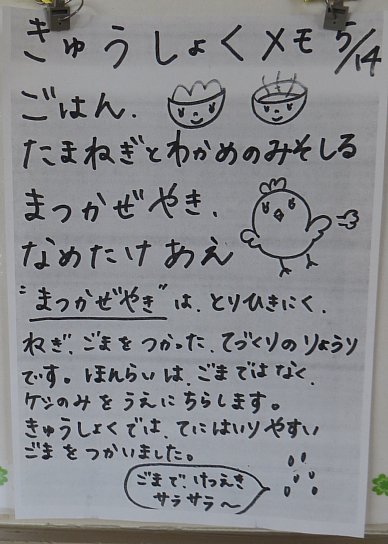 きゅうしょくメモ 5/14
ごはん.
たまねぎとわかめのみそしる
まつかぜやき.
なめたけあえ
"まつかぜやき"は、とりひきにく、
ねぎ、ごまをつかった、てづくりのりょうり
です。ほんらいは、ごまではなく、
ケシのみをうえにちらします。
きゅうしょくでは、てにはいりやすい
ごまをつかいました。
ごまで、けつえき
サラサラ〜